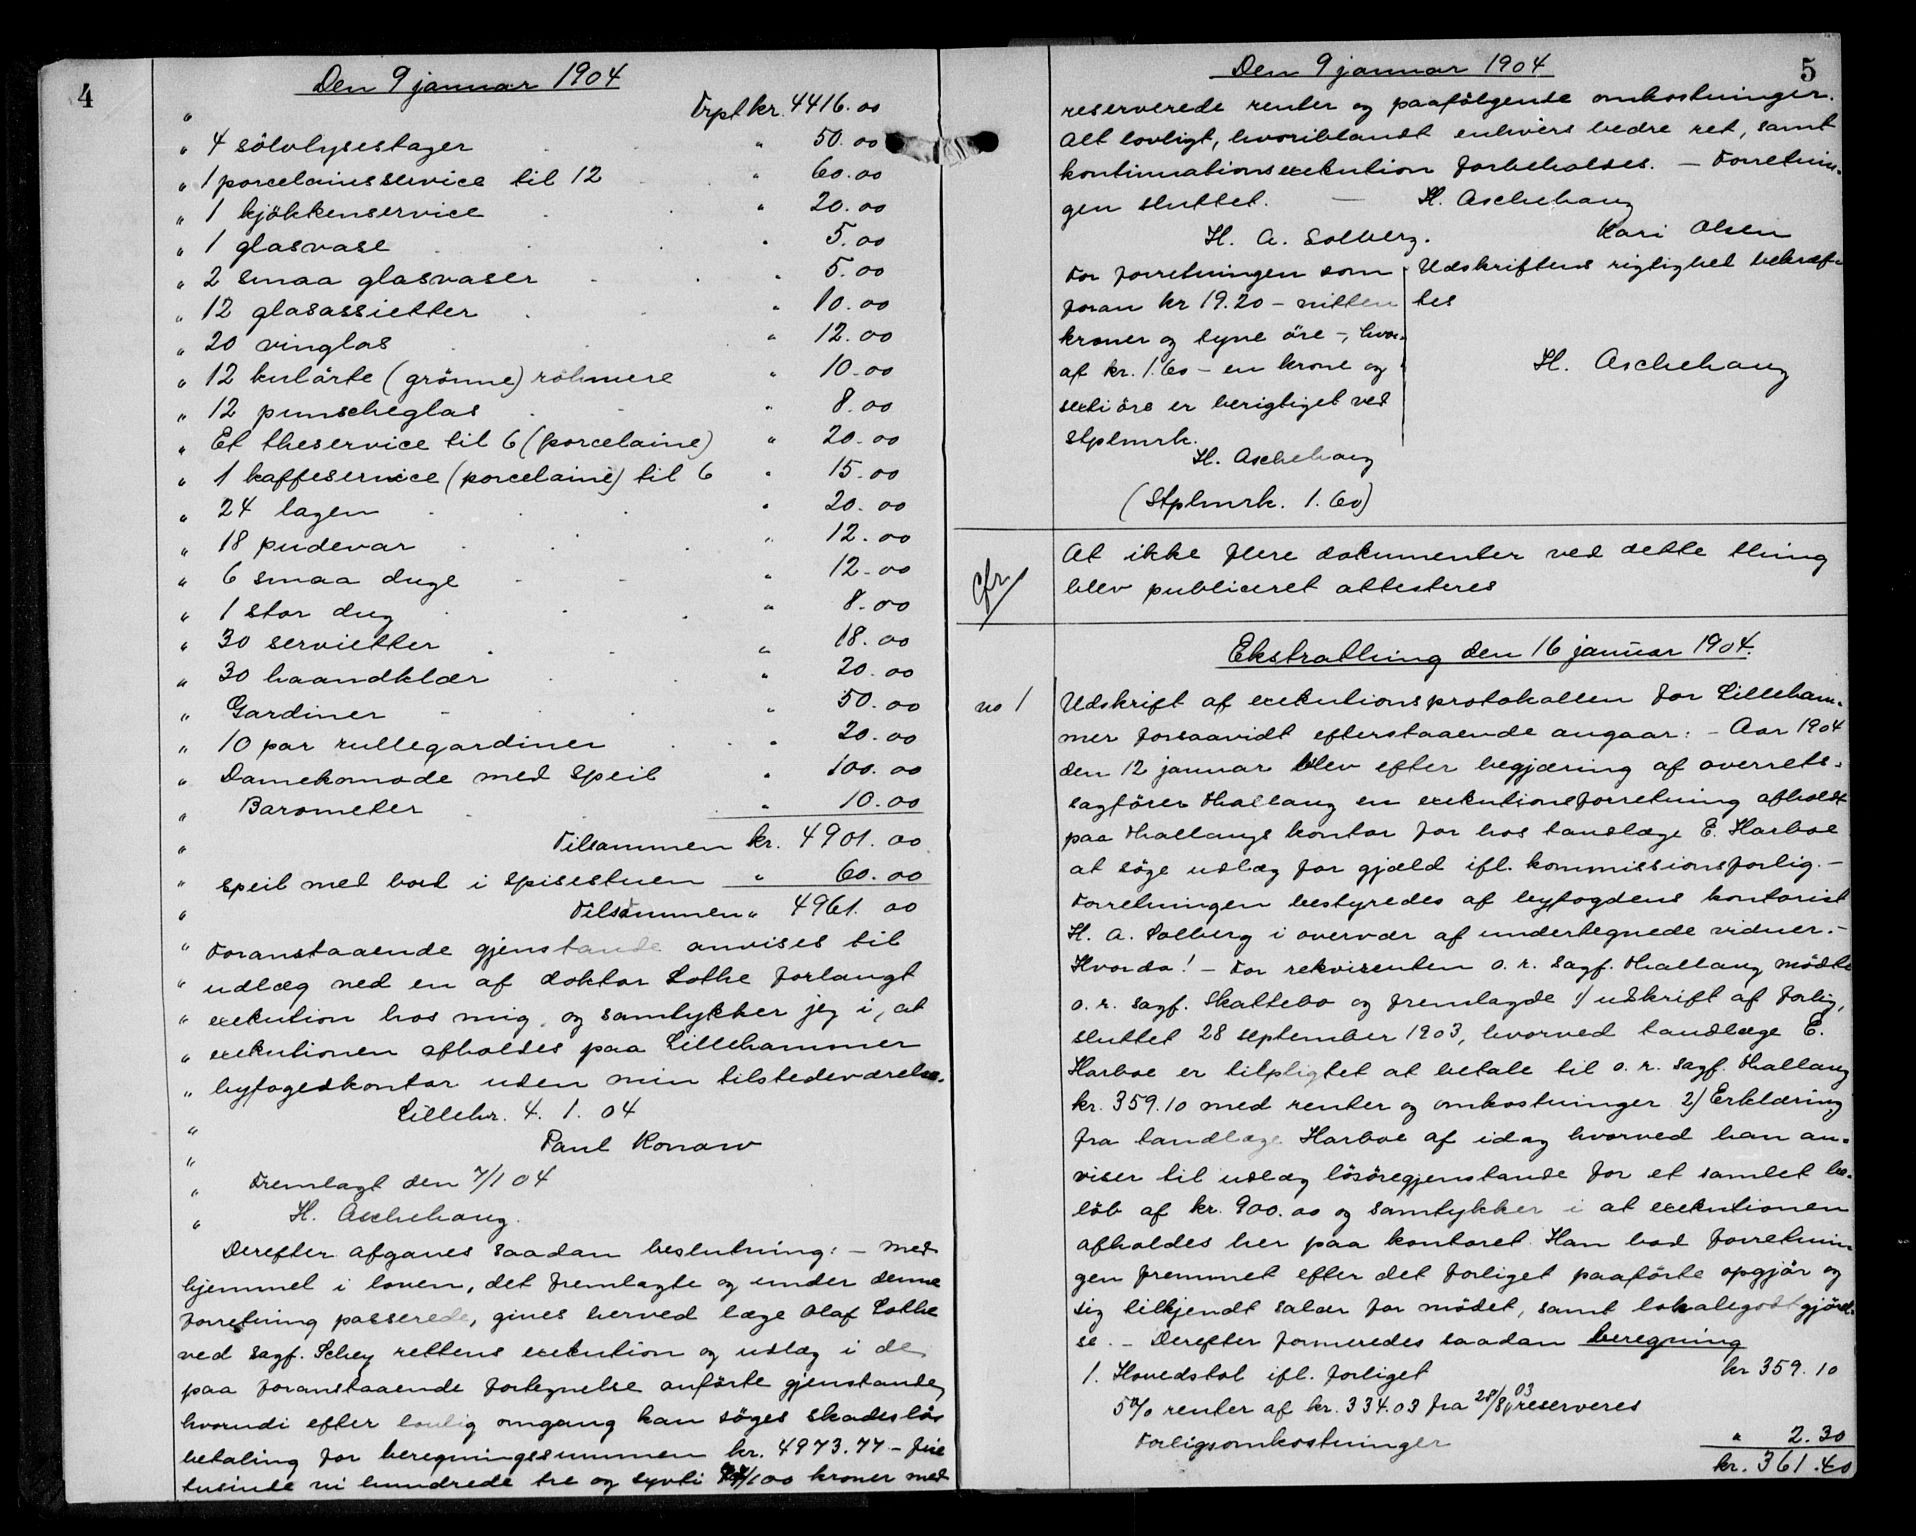 4
Den 9 januar 1904
" Trpt kr. 4416.00
" 4 sölvlysestager " 50.00
" 1 porcelainsservice til 12 " 60.00
" 1 kjökkenservice " 20.00
" 1 glasvase " 5.00
" 2 smaa glasvaser " 5.00
" 12 glasassietter " 10.00
" 20 vinglas " 12.00
" 12 kulörte (grönne) röhmere " 10.00
" 12 punscheglas " 8.00
" Et theservice til 6 (porcelaine) " 20.00
" 1 kaffeservice (porcelaine) til 6 " 15.00
" 24 lagen " 20.00
" 18 pudevar " 12.00
" 6 smaa duge " 12.00
" 1 stor dug " 8.00
" 30 servietter " 18.00
" 30 haandklær " 20.00
" Gardiner " 50.00
" 10 par rullegardiner " 20.00
" Damekomode med speil " 100.00
" Barometer " 10.00
" Tilsammen kr. 4901.00
" Speil med bord i spisestuen " 60.00
" Tilsammen " 4961.00
" Foranstaaende gjenstande anvises til
" udlæg ved en af doktor Lothe forlangt
" exekution hos mig, og samtykker jeg i, at
" exekutionen afholdes paa Lillehammer
" byfogedkontor uden min tilstedeværelse.
Lillehr. 4. 1. 04
" Paul Ronaw
" Fremlagt den 7/1 04
" H. Aschehaug.
Derefter afgaves saadan beslutning: – Med
hjemmel i loven, det fremlagte og under denne
forretning passerede, gives herved læge Olaf Lothe
ved sagf. Schey rettens exekution og udlæg i de
paa foranstaaende fortegnelse anförte gjenstande,
hvorudi efter lovlig omgang kan söges skadeslös
betaling for beregningssummen kr. 4973.77 – fire
tusinde ni hundrede tre og sytti 77/100 kroner med
5
Den 9 januar 1904
reserverede renter og paafölgende omkostninger.
Alt lovligt, hvoriblandt enhvers bedre ret, samt
kontinuationsexekution forbeholdes. – Forretnin-
gen sluttet. – H. Aschehaug
H. A. Solberg. Kari Olsen
For forretningen som
foran kr 19.20 – nitten
kroner og tyve öre –, hvor-
af kr. 1.60 – en krone og
sexti öre er berigtiget ved
stplmrk.
H. Aschehaug
(Stplmrk. 1.60)
Udskriftens rigtighed bekræf-
tes
H. Aschehaug
At ikke flere dokumenter ved dette thing
blev publiceret attesteres
Ekstrathing den 16 januar 1904.
no 1 Udskrift af exekutionsprotokollen for Lilleham-
mer forsaavidt efterstaaende angaar: – Aar 1904
den 12 januar blev efter begjæring af overrets-
sagförer Thallaug en exekutionsforretning afholdt
paa Thallaugs kontor for hos tandlæge E. Harboe
at söge udlæg for gjæld ifl. kommissionsforlig. –
Forretningen bestyredes af byfogdens kontorist
H. A. Solberg i overvær af undertegnede vidner. –
Hvorda! – For rekvirenten o. r. sagf. Thallaug mödte
o. r. sagf. Skattebo og fremlagde 1/ udskrift af forlig,
sluttet 28 september 1903, hvorved tandlæge E.
Harboe er tilpligtet at betale til o. r. sagf. Thallaug
kr. 359.10 med renter og omkostninger 2/ Erklæring
fra tandlæge Harboe af idag hvorved han an-
viser til udlæg lösöregjenstande for et samlet be-
löb af kr. 900.00 og samtykker i at exekutionen
afholdes her paa kontoret. Han bad forretnin-
gen fremmet efter det forliget paaförte opgjör og
sig tilkjendt salær for mödet, samt lokalegodtgjörel-
se. – Derefter formeredes saadan beregning
1. Hovedstol ifl. forliget kr 359.10
5% renter af kr. 334.03 fra 28/8 03 reserveres
Forligsomkostninger " 2.30
kr. 361.40